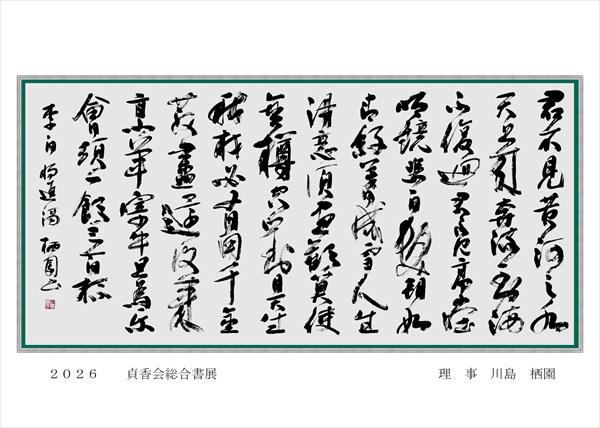 君不見黄河之水
天上来奔流到海
不復迴君不見高堂
明鏡悲白髪朝如
青絲暮成雪人生
得意須盡歓莫使
金樽空對月天生
我材必有用千金
散盡還復来
烹羊宰牛且為楽
會須一飲三百杯
李白 将進酒 栖園書
２０２６　貞香会総合書展
理事　川島　栖園